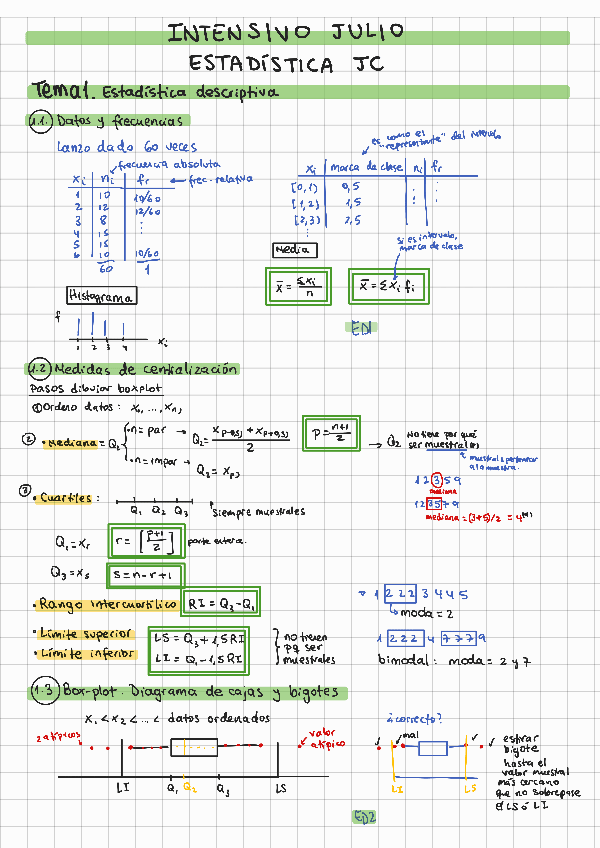 INTENSIVO JULIO
ESTADÍSTICA JC
Tema1. Estadística descriptiva
1.1. Datos y frecuencias
Lanzo dado 60 veces
frecuencia absoluta
xi ni fr ← frec. relativa
1 10 10/60
2 12 12/60
3 8 :
4 15
5 15
6 10 10/60
60 1
es como el "representante" del intervalo
xi marca de clase ni fr
[0,1) 0,5 : :
[1,2) 1,5 : :
[2,3) 2,5
:
Media
si es intervalo, marca de clase
x̄ = Σxi/n
x̄ = Σxi fi
Histograma
f
1 2 3 4 xi
ED1
1.2 Medidas de centralización
Pasos dibujar boxplot
① Ordeno datos: x1, ..., xn,
② • Mediana = Q2
• n = par → Q2 = (xp-0,5) + xp+0,5))/2
• n = impar → Q2 = xp)
P = (n+1)/2
→ Q2 No tiene por qué ser muestral(*)
muestral: pertenecer a la muestra.
1 2 3 5 9
mediana
1 2 3 5 7 9
mediana = (3+5)/2 = 4(*)
③ • Cuartiles:
Q1 Q2 Q3
siempre muestrales
Q1 = xr r = [(p+1)/2] parte entera.
Q3 = xs s = n-r+1
• Rango intercuartílico RI = Q3 - Q1
• Límite superior LS = Q3 + 1,5RI
• Límite inferior LI = Q1 - 1,5RI
no tienen pq ser muestrales
1 2 2 2 3 4 4 5
moda = 2
1 2 2 2 4 7 7 7 9
bimodal: moda = 2 y 7
1.3 Box-plot. Diagrama de cajas y bigotes
x1 < x2 < ... < datos ordenados
2 atípicos
valor atípico
LI Q1 Q2 Q3 LS
¿correcto?
mal
LI LS
estirar bigote
hasta el
valor muestral
más cercano
que no sobrepase
el LS ó LI
ED2